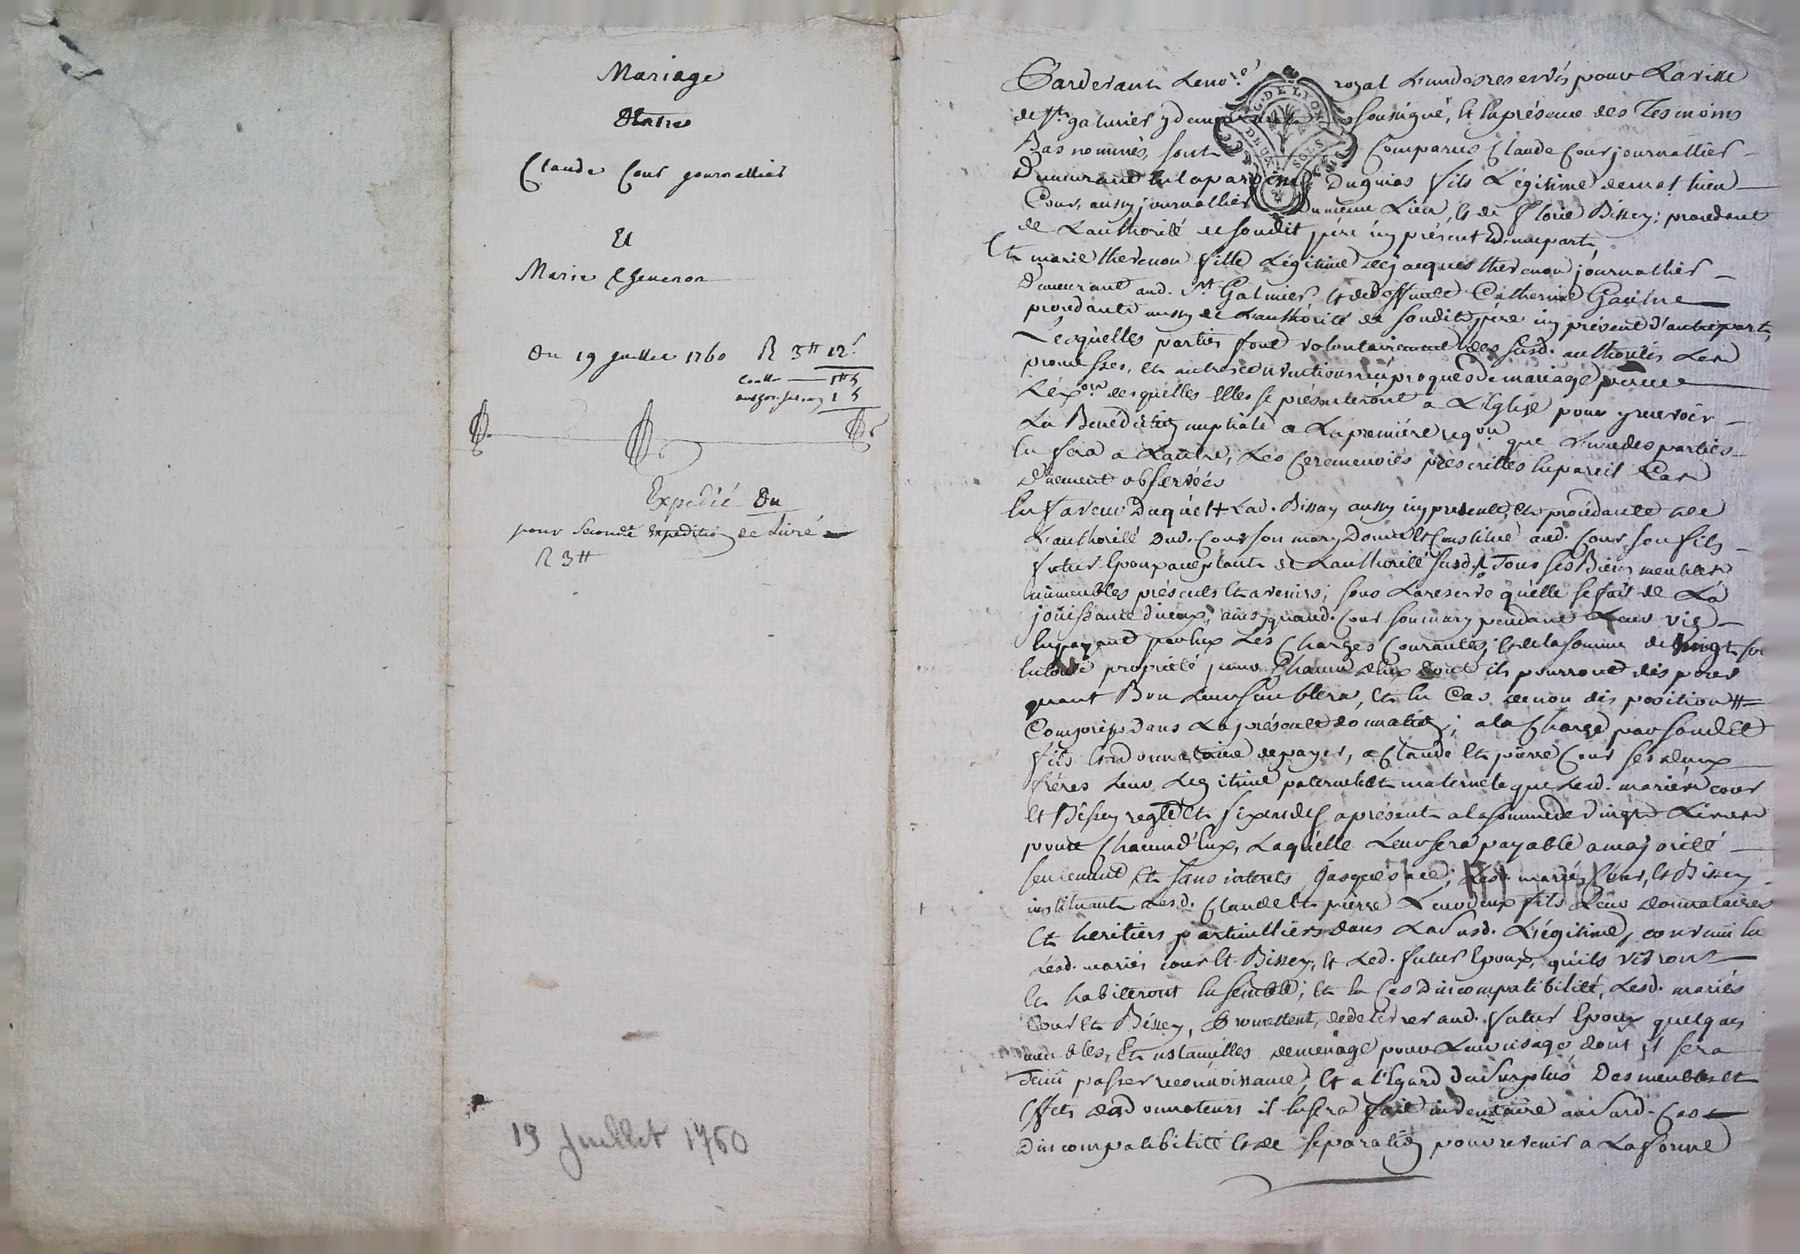 Mariage
Entre
Claude Cour journallier
Et
Marie Thevenon
Du 19 Juillet 1760 R 3# 12s
Expedié Du
pour seconde Expedition de Livré
R 3#
19 Juillet 1760
Pardevant Le no.re royal L'un des reservés pour La ville
de St. galmier y demeurant soussigné, Et En présence des Tesmoins
Bas nommés, sont Comparus Claude Cour journallier
Demeurant En la paroisse fils Légitime de mathieu
Cour, aussy journallier Du même Lieu, Et de florie Bissey; procédant
de L'authorité de sondit père icy présent D'une part;
Et marie thevenon fille Légitime de jacques thevenon journallier
Demeurant aud. St. Galmier, Et de deffunte Catherine
procédante aussy de L'authorité de sondit père icy présent d'autre part;
Lesquelles parties font volontairement des susd. authorités Les
promesses, Et autres conventions réciproques de mariage
L'éx.on desquelles Elles se présenteront a L'Eglise pour y recevoir
La Bénédiction nuptiale a La première req.on que L'une des parties
En fera a L'autre, Les Ceremonies prescrittes En pareil Cas
Duement observées
En faveur Duquel Lad. Bissey aussy icy présente Et procédante de
L'authorité Dud. Cour son mary Donne Et Constitue aud. Cour son fils
futur Epoux acceptant de L'authorité susd. Tous ses Biens meubles
immeubles présents Et avenirs, sous La reserve qu'elle se fait de La
jouissance d'iceux, ainsy qu'aud. Cour son mary pendant Leur vie
En payant par Eux Les Charges Courantes; Et de la somme de
En toute proprieté pour Chacun d'Eux dont ils pourront disposer
quant Bon Leur semblera, Et En Cas de non disposition
Comprise Dans La présente donnation; a la Charge par sondit
fils Et donnataire de payer, a Claude Et pierre Cour ses deux
frères Leur Légitime paternelle Et maternelle que Lesd. mariés Cour
Et Bissey reglent Et fixent dès aprésent a la somme de vingt Livres
pour Chacun d'Eux, Laquelle Leur sera payable a majorité
seulement Et sans interets jusques a ce; Lesd. mariés Cour, Et Bissey
instituant Lesd. Claude Et pierre Leurs deux fils Leur donnataires
Et heritiers particulliers dans La susd. Légitime, convenu
Lesd. mariés Cour Et Bissey, Et Led. futur Epoux, qu'ils vivront
Et habiteront Ensemble; Et En Cas D'incompatibilité, Lesd. mariés
Cour Et Bissey, Promettent, de delivrer aud. futur Epoux quelques
meubles, Et ustancilles de menage pour Leur usage dont il sera
Tenu passer reconnoissance; Et a l'Egard du surplus Des meubles Et
Effets des donnateurs il En sera fait inventaire au susd. Cas
D'incompatibilité Et de séparation pour revenir a La forme